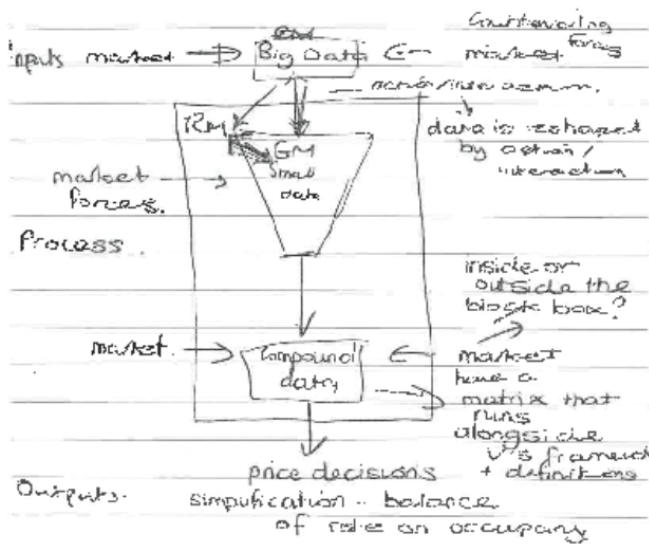 Countervailing
forces
Inputs market Big Data market
RM GM
Small
data
data is reshaped
by action/
interaction
market
forces.
Process.
inside or
outside the
black box?
market. Compound
data,
market
have a
matrix that
runs
alongside
V's framework
+ definitions
price decisions
Outputs. simplification - balance
of rate on occupany